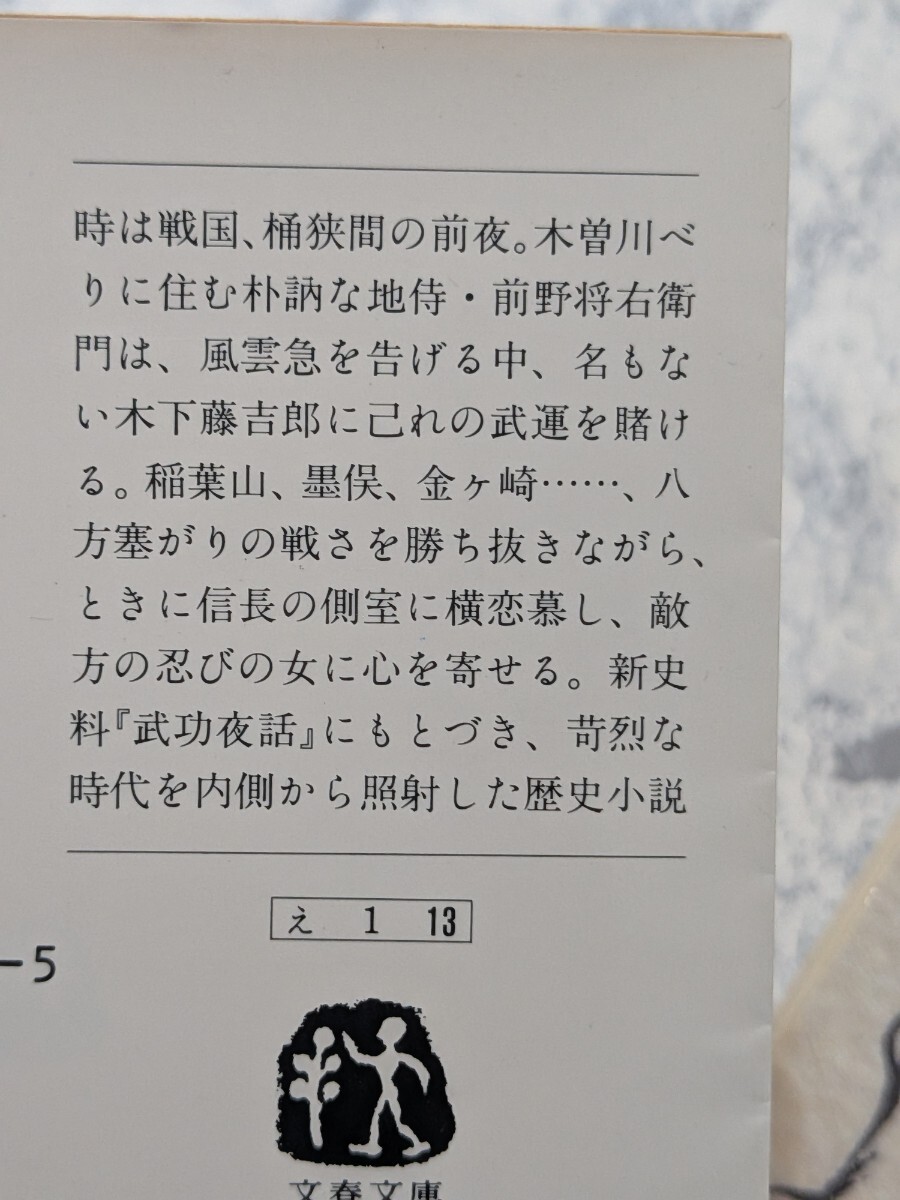 時は戦国、桶狭間の前夜。木曽川べ
りに住む朴訥な地侍・前野将右衛
門は、風雲急を告げる中、名もな
い木下藤吉郎に己れの武運を賭け
る。稲葉山、墨俣、金ヶ崎……、八
方塞がりの戦さを勝ち抜きながら、
ときに信長の側室に横恋慕し、敵
方の忍びの女に心を寄せる。新史
料『武功夜話』にもとづき、苛烈な
時代を内側から照射した歴史小説
え 1 13
-5
文春文庫